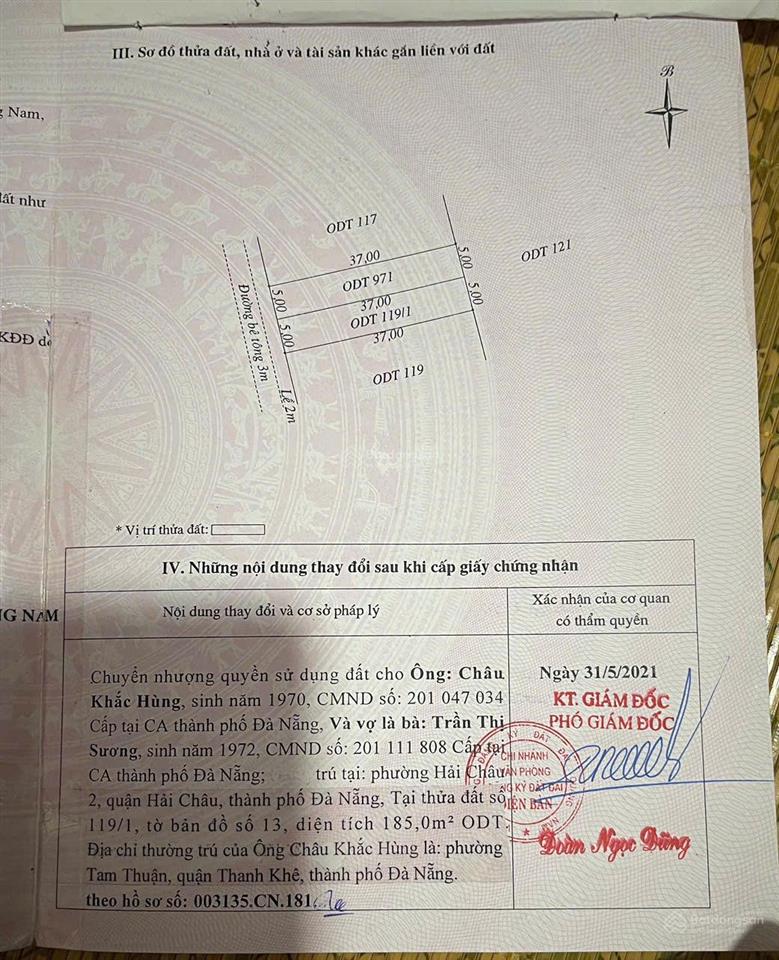 III. Sơ đồ thửa đất, nhà ở và tài sản khác gắn liền với đất
B
Nam,
đất như
KĐĐ
NG NAM
ODT 117
37,00
5,00
ODT 121
ODT 971
5,00
37,00
5,00
ODT 119/1
5,00
37,00
ODT 119
Đường bê tông 3m
Lề 2m
Batdongsan
* Vị trí thửa đất:
IV. Những nội dung thay đổi sau khi cấp giấy chứng nhận
Nội dung thay đổi và cơ sở pháp lý
Xác nhận của cơ quan
có thẩm quyền
Chuyển nhượng quyền sử dụng đất cho Ông: Châu
Khắc Hùng, sinh năm 1970, CMND số: 201 047 034
Cấp tại CA thành phố Đà Nẵng, Và vợ là bà: Trần Thị
Sương, sinh năm 1972, CMND số: 201 111 808 Cấp tại
CA thành phố Đà Nẵng; trú tại: phường Hải Châu
2, quận Hải Châu, thành phố Đà Nẵng, Tại thửa đất số
119/1, tờ bản đồ số 13, diện tích 185,0m² ODT.
Địa chỉ thường trú của Ông Châu Khắc Hùng là: phường
Tam Thuận, quận Thanh Khê, thành phố Đà Nẵng.
theo hồ sơ số: 003135.CN.181
Ngày 31/5/2021
KT. GIÁM ĐỐC
PHÓ GIÁM ĐỐC
CHI NHÁNH
VĂN PHÒNG
ĐĂNG KÝ ĐẤT ĐAI
ĐIỆN BÀN
Đoàn Ngọc Dũng
Batdongsan